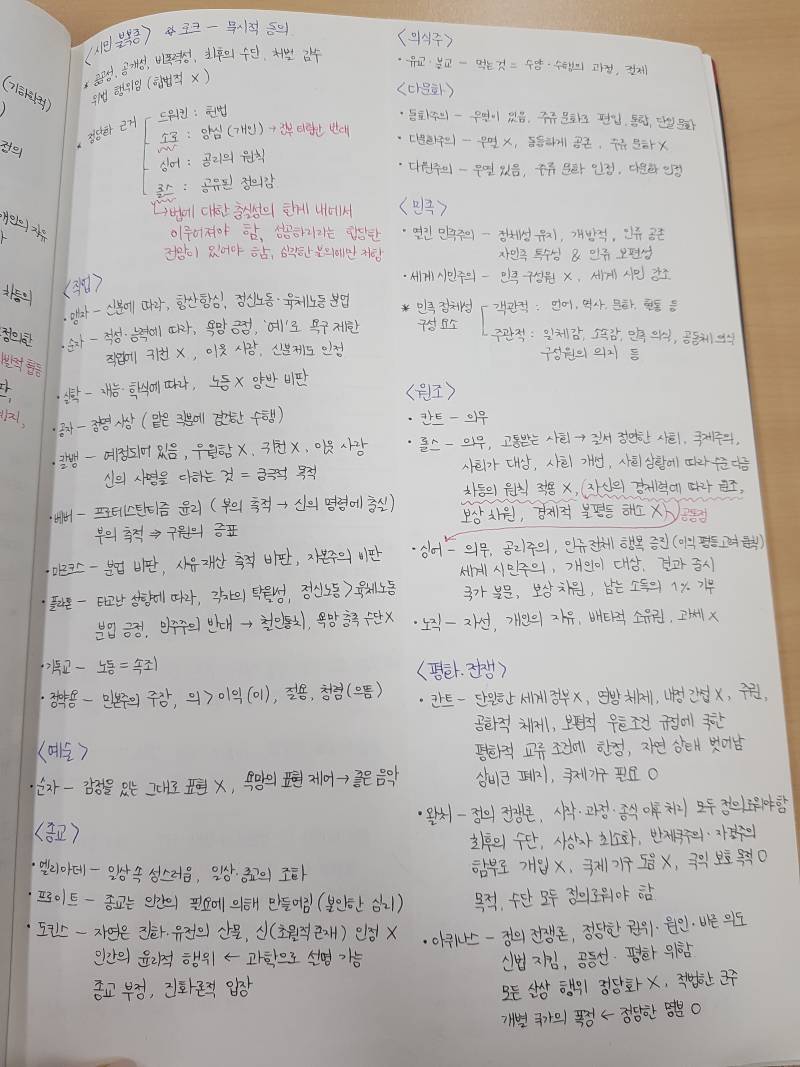 <시민 불복종> ☆ 로크 - 묵시적 동의
* 공공성, 공개성, 비폭력성, 최후의 수단, 처벌 감수
위법 행위임 (합법적 X)
* 정당화 근거
드워킨 : 헌법
소로 : 양심 (개인) →
싱어 : 공리의 원칙
롤스 : 공유된 정의감
↳ 법에 대한 충실성의 한계 내에서
이루어져야 함, 성공하리라는 합당한
전망이 있어야 함, 심각한 부정의에만 저항
<직업>
• 맹자 - 신분에 따라, 항산항심, 정신노동·육체노동 분업
• 순자 - 적성·능력에 따라, 욕망 긍정, '예'로 욕구 제한
직업에 귀천 X, 이웃 사랑, 신분제도 인정
• 실학 - 재능·학식에 따라, 노동 X 양반 비판
• 공자 - 정명 사상 (맡은 직분에 경건한 수행)
• 칼뱅 - 예정되어 있음, 우월함 X, 귀천 X, 이웃 사랑
신의 사명을 다하는 것 = 궁극적 목적
• 베버 - 프로테스탄티즘 윤리 (부의 축적 → 신의 명령에 충실)
부의 축적 ⇒ 구원의 증표
• 마르크스 - 분업 비판, 사유재산 축적 비판, 자본주의 비판
• 플라톤 - 타고난 성향에 따라, 각자의 탁월성, 정신노동 > 육체노동
분업 긍정, 민주주의 반대 → 철인통치, 욕망 충족 수단 X
• 기독교 - 노동 = 속죄
• 정약용 - 민본주의 주장, 의 > 이익 (이), 절용, 청렴 (으뜸)
<예술>
• 순자 - 감정을 있는 그대로 표현 X, 욕망의 표현 제어 → 좋은 음악
<종교>
• 엘리아데 - 일상 속 성스러움, 일상·종교의 조화
• 프로이트 - 종교는 인간의 필요에 의해 만들어짐 (불안한 심리)
• 도킨스 - 자연은 진화·유전의 산물, 신(초월적 존재) 인정 X
인간의 윤리적 행위 ← 과학으로 설명 가능
종교 부정, 진화론적 입장
<의식주>
• 유교·불교 - 먹는 것 = 수양·수행의 과정, 절제
<다문화>
• 동화주의 - 우열이 있음, 주류 문화로 편입, 통합, 단일 문화
• 다문화주의 - 우열 X, 동등하게 공존, 주류 문화 X
• 다원주의 - 우열 있음, 주류 문화 인정, 다문화 인정
<민족>
• 열린 민족주의 - 정체성 유지, 개방적, 인류 공존
자민족 특수성 & 인류 보편성
• 세계 시민주의 - 민족 구성원 X, 세계 시민 강조
* 민족 정체성
구성 요소
객관적 : 언어, 역사, 문화, 혈통 등
주관적 : 일체감, 소속감, 민족 의식, 공동체 의식
구성원의 의지 등
<원조>
• 칸트 - 의무
• 롤스 - 의무, 고통받는 사회 → 질서 정연한 사회, 국제주의,
사회가 대상, 사회 개선, 사회 상황에 따라 수준 다름
차등의 원칙 적용 X, 자신의 경제력에 따라 원조,
보상 차원, 경제적 불평등 해소 X 공통점
• 싱어 - 의무, 공리주의, 인류 전체 행복 증진 (이익 평등 고려 원칙)
세계 시민주의, 개인이 대상, 결과 중시
국가 불문, 보상 차원, 남는 소득의 1% 기부
• 노직 - 자선, 개인의 자유, 배타적 소유권, 과세 X
<평화·전쟁>
• 칸트 - 단일한 세계정부 X, 연방 체제, 내정 간섭 X, 주권,
공화적 체제, 보편적 우호 조건 규정에 국한
평화적 교류 조건에 한정, 자연 상태 벗어남
상비군 폐지, 국제기구 필요 O
• 왈처 - 정의 전쟁론, 시작·과정·종식 이후 처리 모두 정의로워야 함
최후의 수단, 사상자 최소화, 반제국주의·자결주의
함부로 개입 X, 국제 기구 도움 X, 국익 보호 목적 O
목적, 수단 모두 정의로워야 함
• 아퀴나스 - 정의 전쟁론, 정당한 권위·원인·바른 의도
신법 지킴, 공동선·평화 위함
모든 살상 행위 정당화 X, 적법한 군주
개별 국가의 폭정 ← 정당한 명분 O